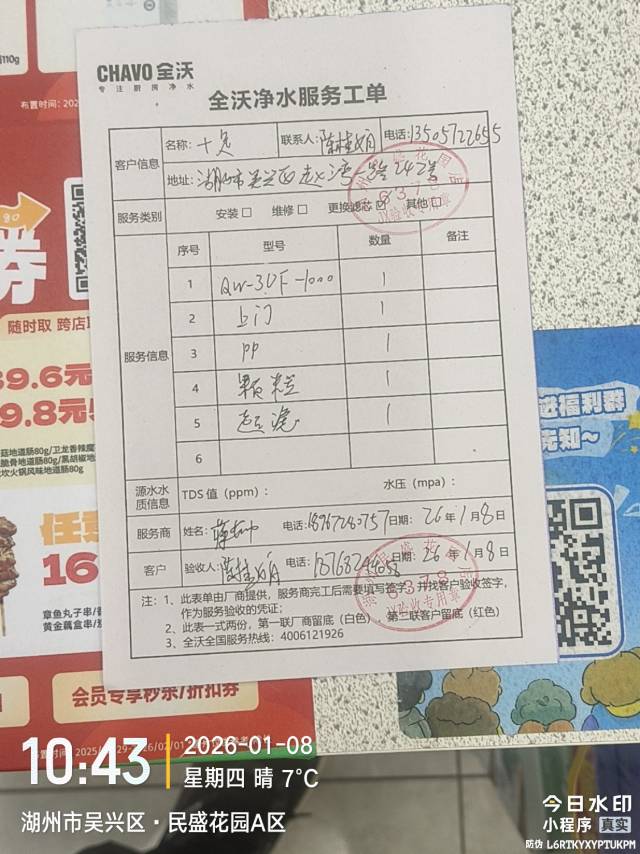 110g
布置时间：202
CHAVO 全沃
专注厨房净水
全沃净水服务工单
客户信息
名称：十足
联系人：陈桂娟
电话：13505722655
地址：湖州市吴兴区
路242号
服务类别
安装□ 维修□ 更换滤芯☑ 其他□
服务信息
序号 型号 数量 备注
1 QW-3UF-1000 1
2 上门 1
3 PP 1
4 颗粒 1
5 超滤 1
6
源水水质信息
TDS 值（ppm）： 水压（mpa）：
服务商
姓名：
电话：18767280757
日期：26年1月8日
客户
验收人：陈桂娟
电话：
日期：26年1月8日
注：1、此表单由厂商提供，服务商完工后需要填写签字，并找客户验收签字，
作为服务验收的凭证；
2、此表一式两份，第一联厂商留底（白色） 第二联客户留底（红色）
3、全沃全国服务热线：4006121926
验收专用章
验收专用章
券
随时取 跨店
39.6元
9.8元
地道肠80g/卫龙香辣魔
脆骨地道肠80g/黑胡椒地
炊火锅风味地道肠80g
任意
16
章鱼丸子串/
黄金藕盒串/
会员专享秒杀/折扣券
进福利群
先知~
10:43
2026-01-08
星期四 晴 7℃
湖州市吴兴区·民盛花园A区
今日水印
小程序 真实
防伪 L6RTKYXYPTUKPM